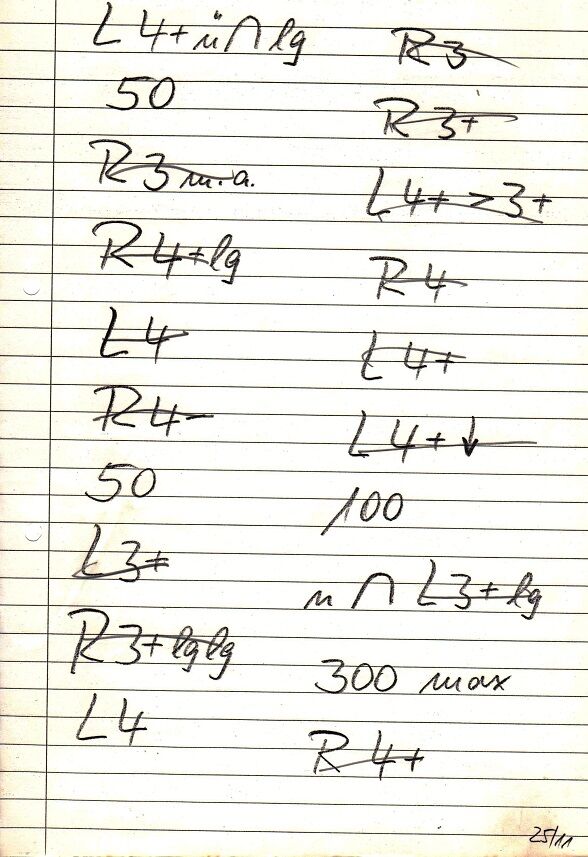 L 4+ ü ∩ lg
50
R 3 m.a.
R 4+ lg
L 4
R 4-
50
L 3+
R 3+ lglg
L 4
R 3
R 3+
L 4+ > 3+
R 4
L 4+
L 4+ ↓
100
u ∩ L 3+ lg
300 max
R 4+
25/11